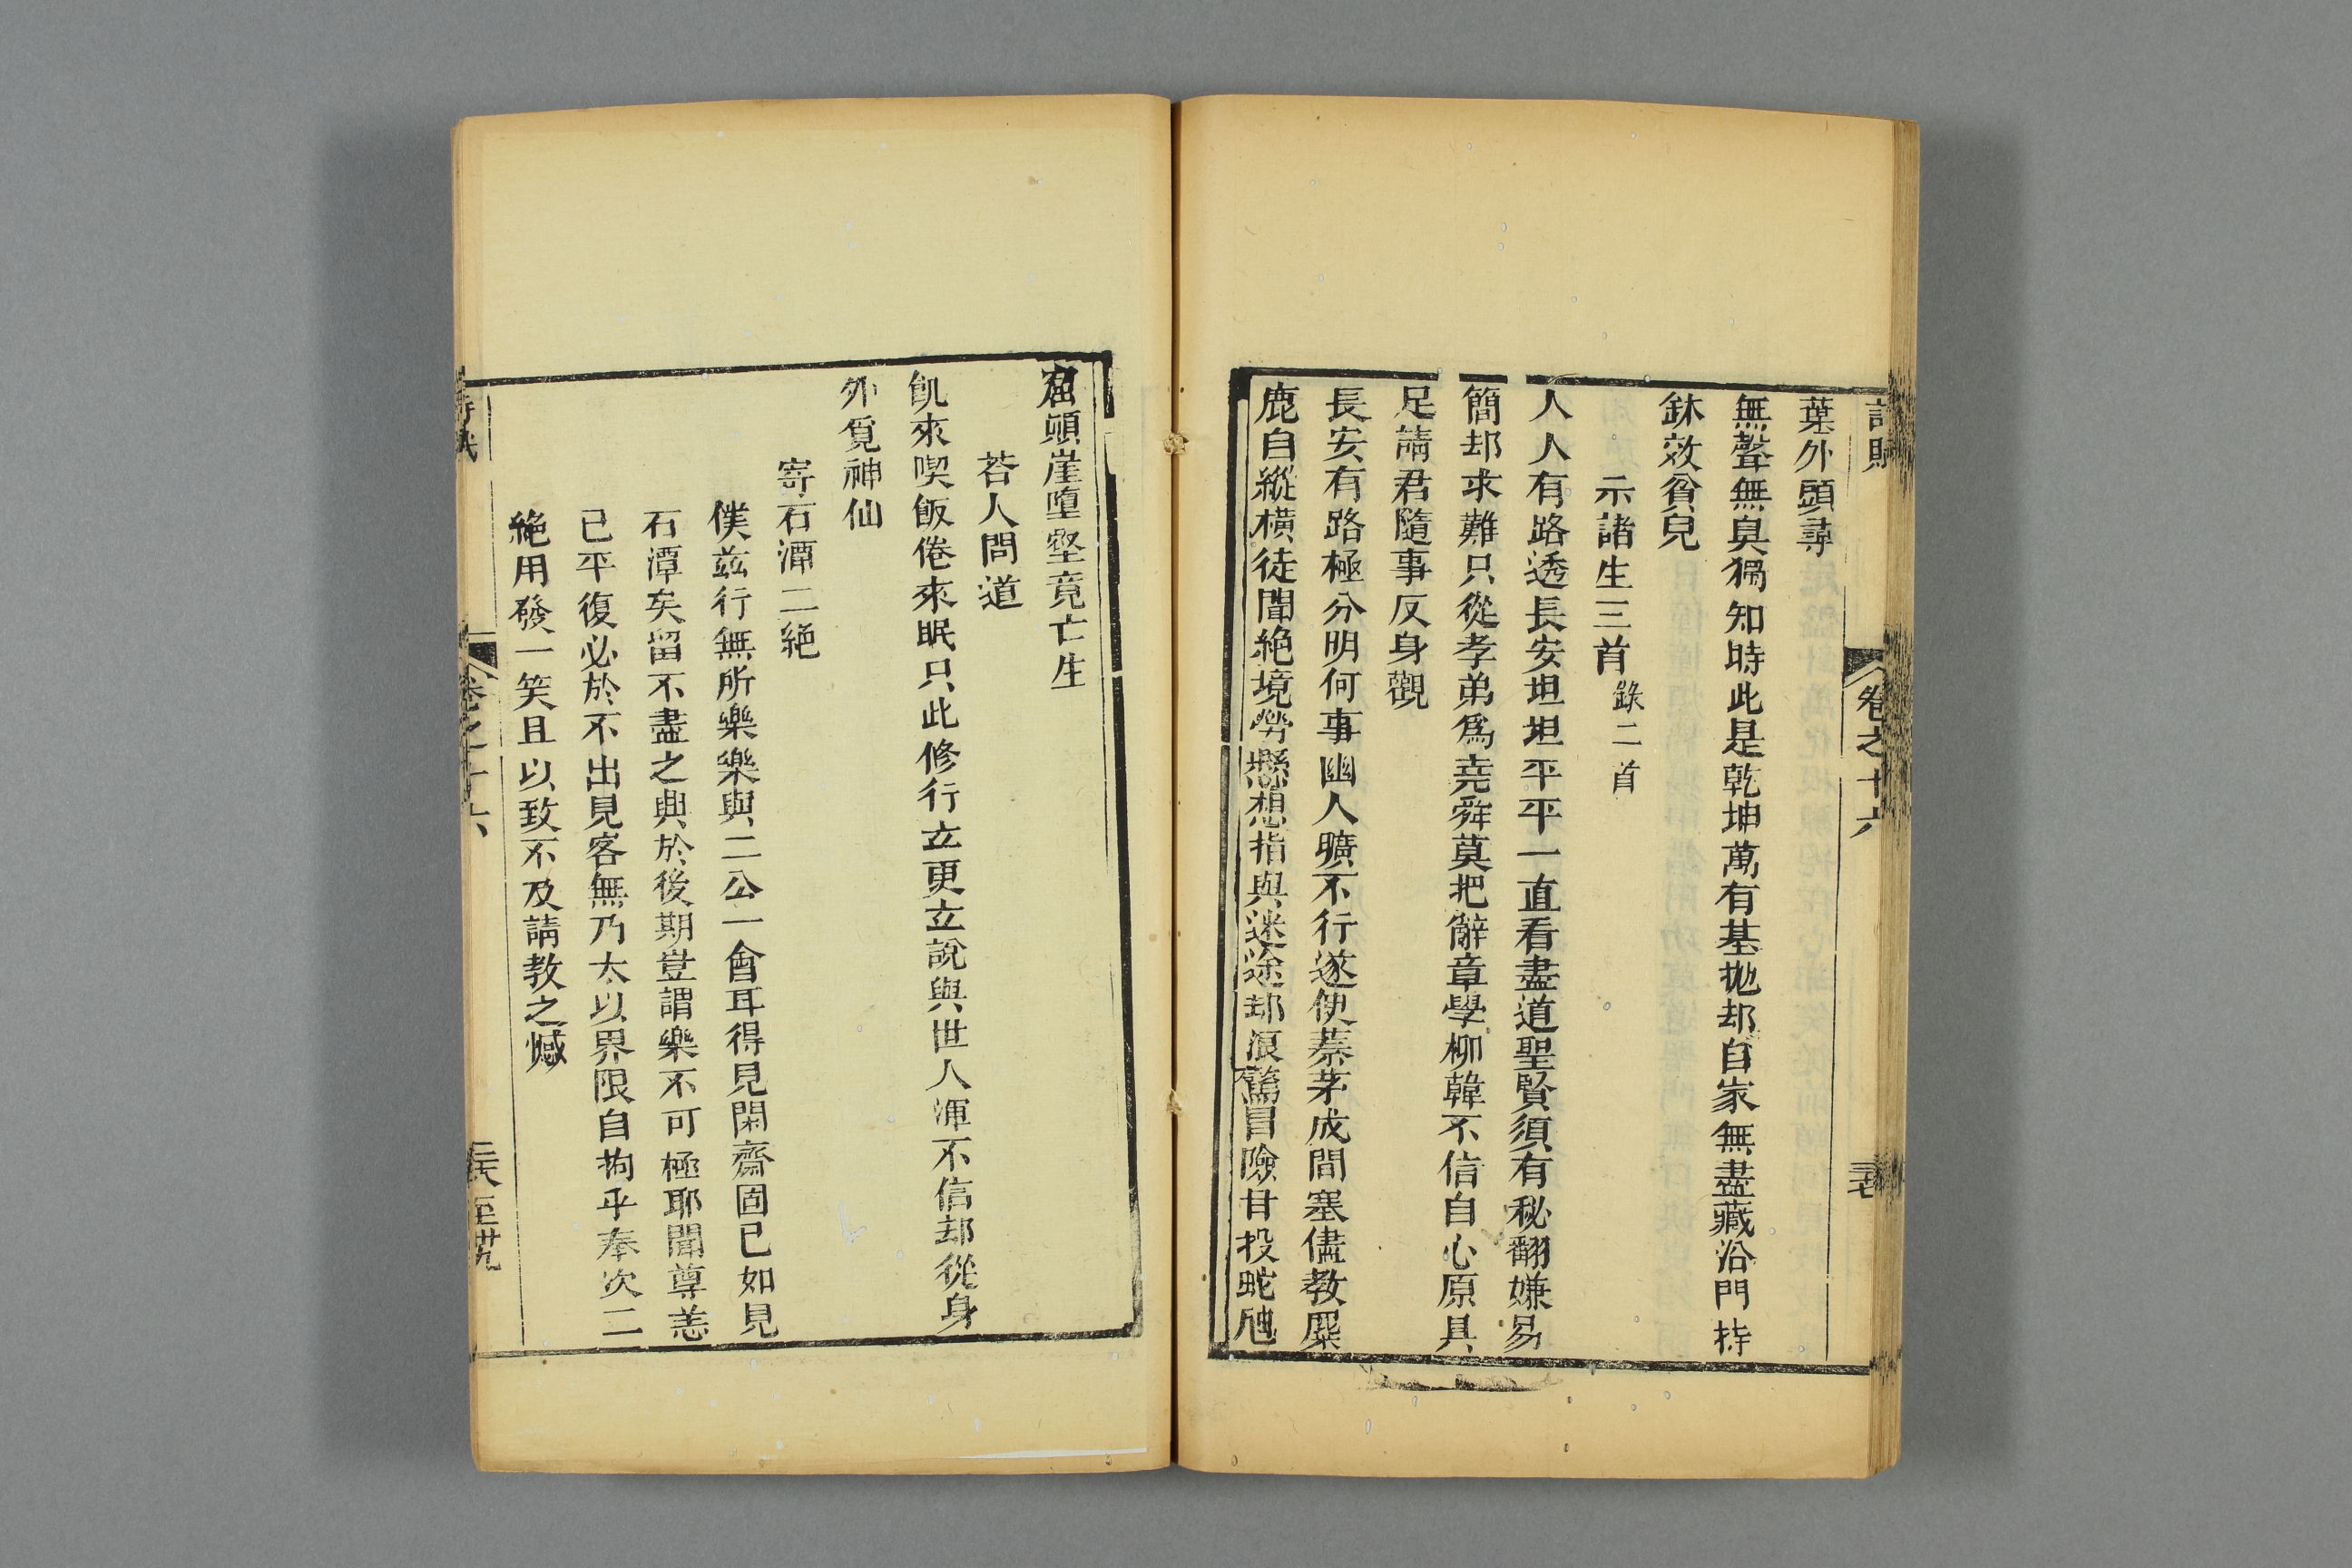 詩賦
卷之十六
葉外頭尋
無聲無臭獨知時此是乾坤萬有基拋却自家無盡藏沿門持
鉢效貧兒
示諸生三首 錄二首
人人有路透長安坦坦平平一直看盡道聖賢須有秘翻嫌易
簡却求難只從孝弟爲堯舜莫把辭章學柳韓不信自心原具
足請君隨事反身觀
長安有路極分明何事幽人曠不行遂使蓁茅成間塞儘教麋
鹿自縱橫徒聞絶境勞懸想指與迷途却浪驚冒險甘投蛇虺
窟顛崖墮壑竟亡生
荅人問道
飢來喫飯倦來眠只此修行立更立說與世人渾不信却從身
外覓神仙
寄石潭二絶
僕茲行無所樂樂與二公一會耳得見閑齋固已如見
石潭矣留不盡之興於後期豈謂樂不可極耶聞尊恙
已平復必於不出見客無乃太以界限自拘乎奉次二
絶用發一笑且以致不及請教之憾
卷之十六